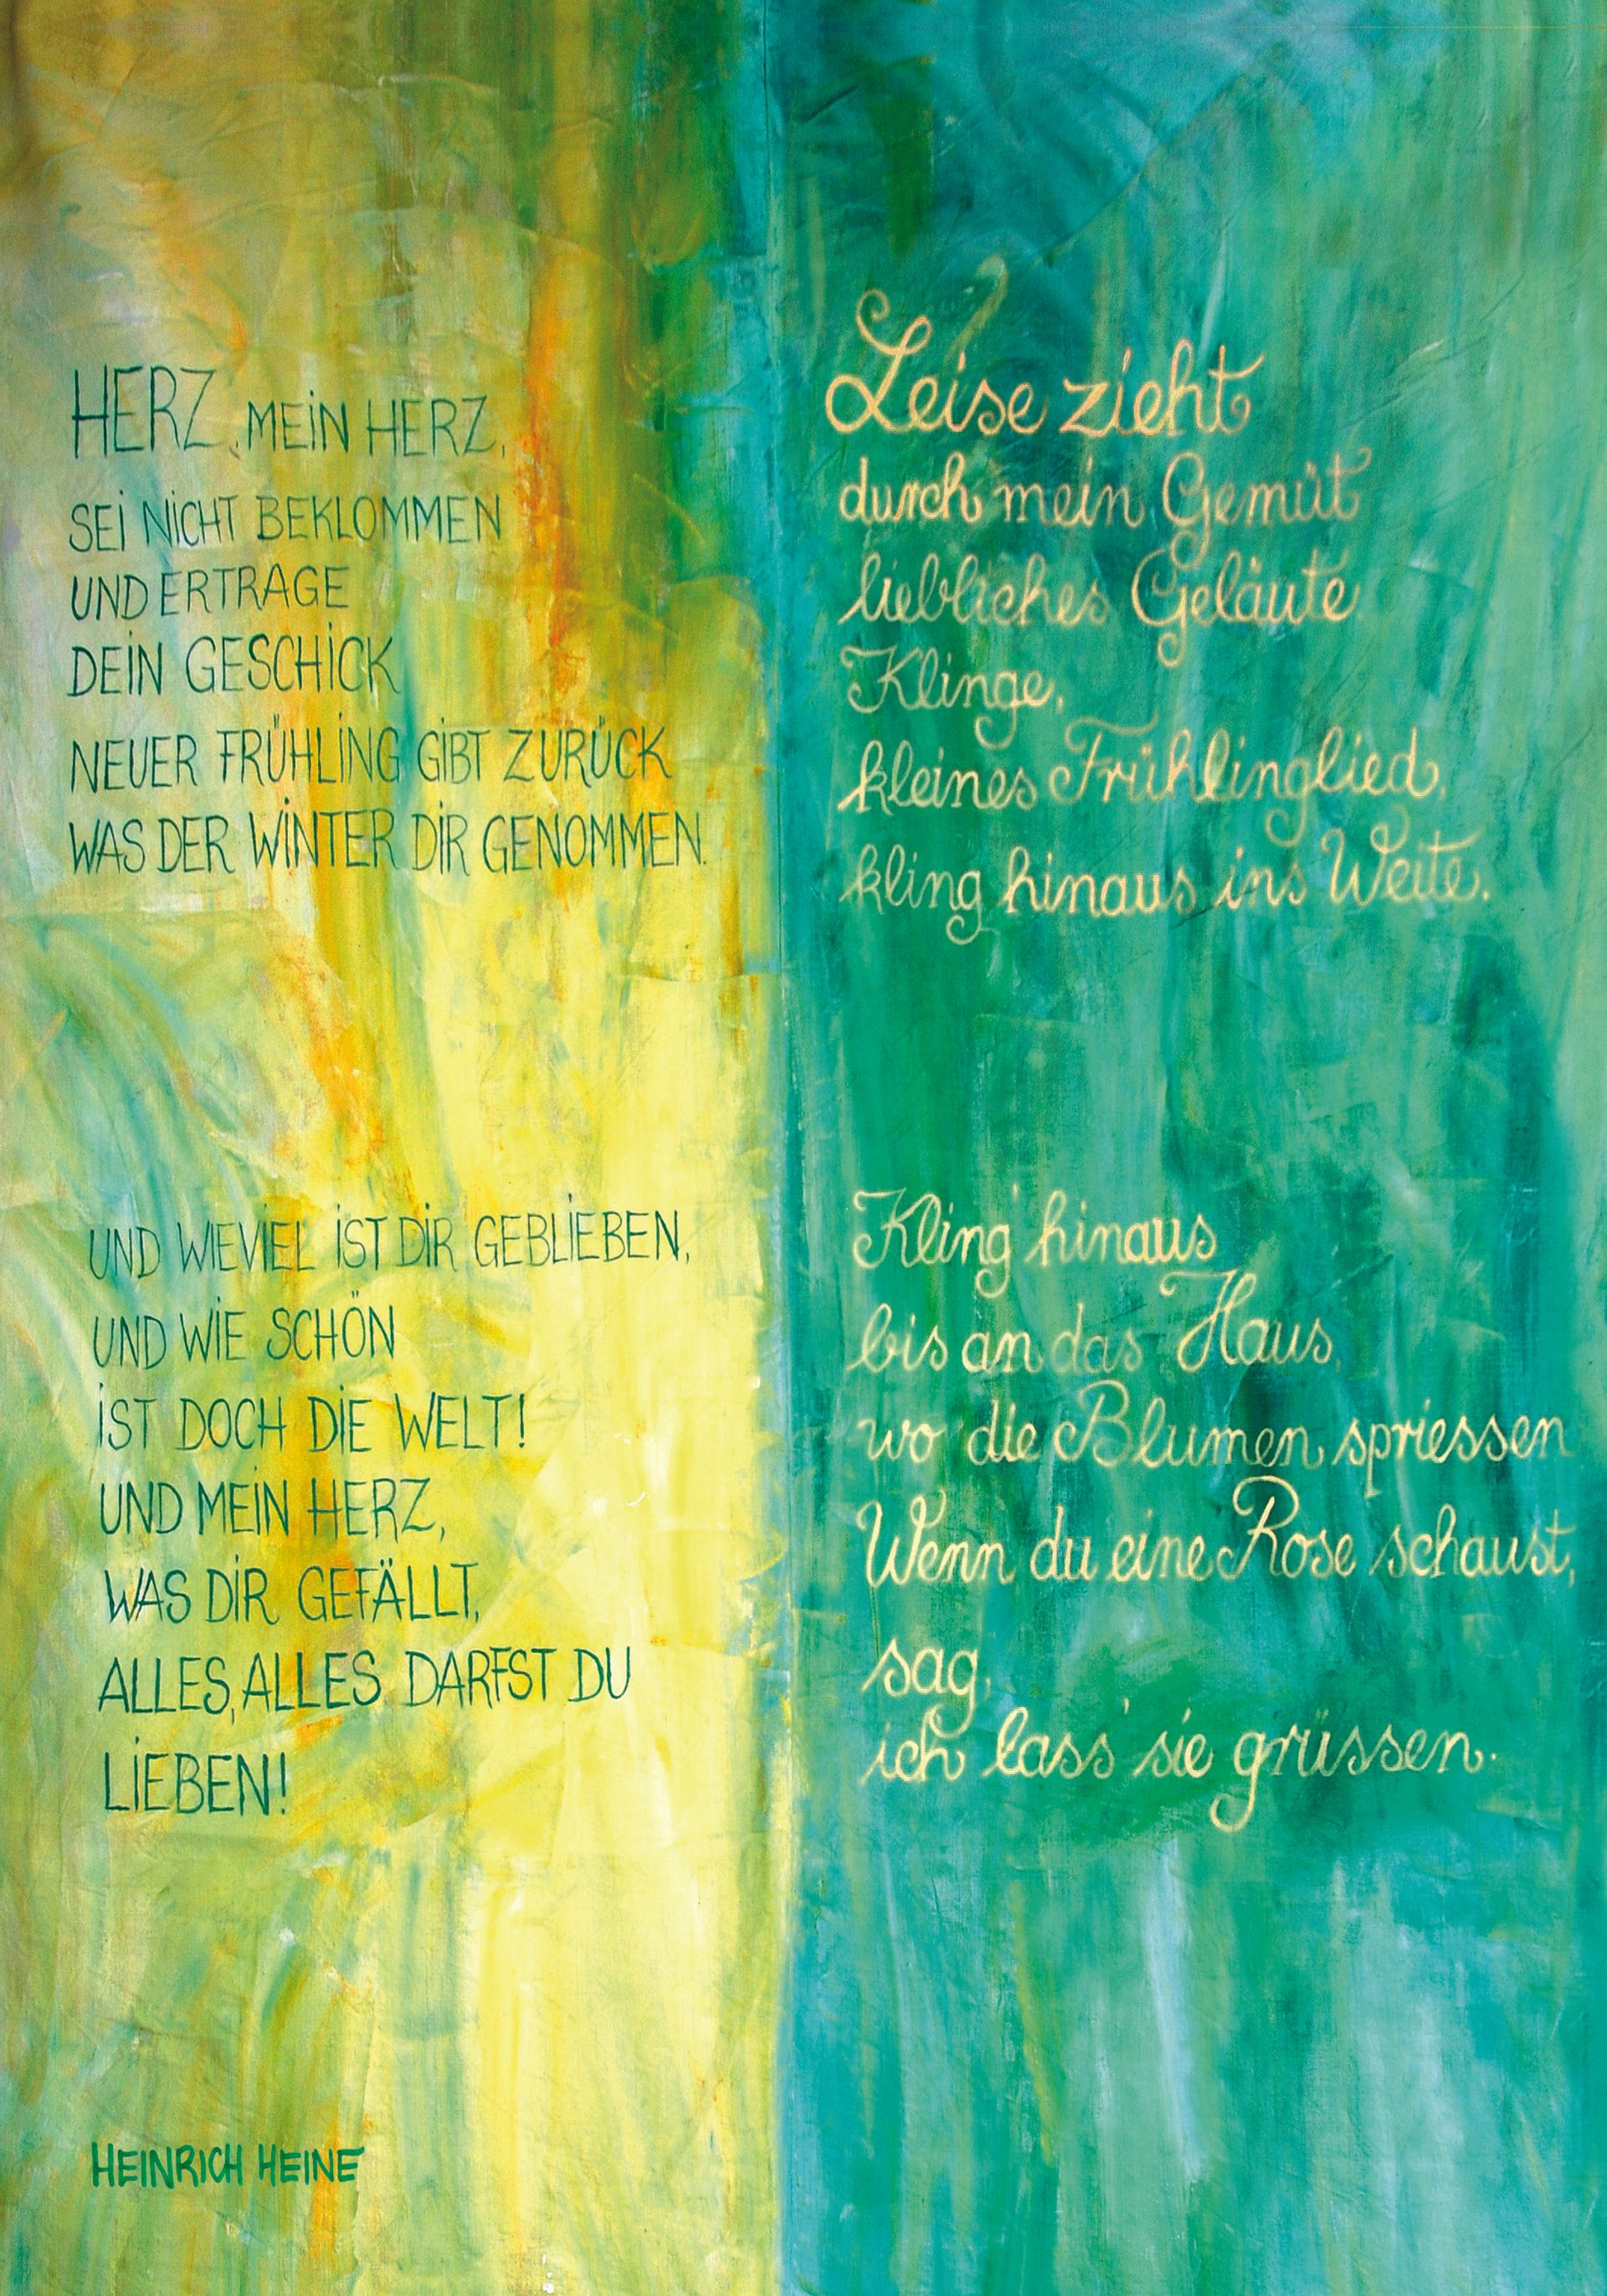 HERZ, MEIN HERZ,
SEI NICHT BEKLOMMEN
UND ERTRAGE
DEIN GESCHICK
NEUER FRÜHLING GIBT ZURÜCK
WAS DER WINTER DIR GENOMMEN.
UND WIEVIEL IST DIR GEBLIEBEN,
UND WIE SCHÖN
IST DOCH DIE WELT!
UND MEIN HERZ,
WAS DIR GEFÄLLT,
ALLES, ALLES DARFST DU
LIEBEN!
HEINRICH HEINE
Leise zieht
durch mein Gemüt
liebliches Geläute
Klinge,
kleines Frühlinglied,
kling hinaus ins Weite.
Kling' hinaus
bis an das Haus,
wo die Blumen spriessen
Wenn du eine Rose schaust,
sag,
ich lass' sie grüssen.